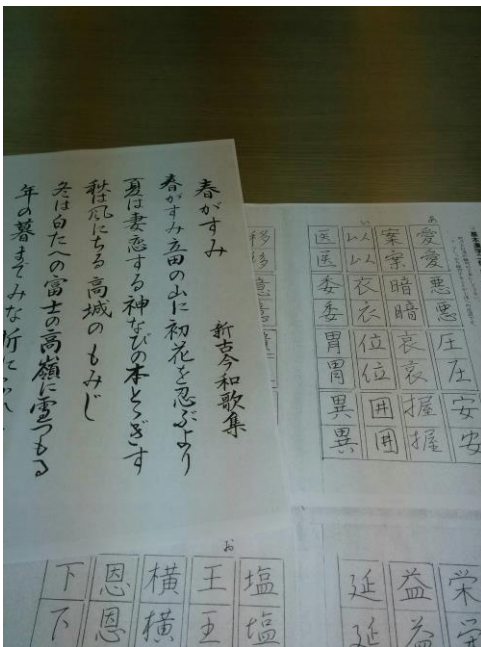 春がすみ
新古今和歌集
春がすみ立田の山に初花を忍ぶより
夏は妻恋する神なびの本とゝぎす
秋は風にちる高城のもみじ
冬は白たへの富士の高嶺に雪つもる
年の暮までみな折にふれ
あ
愛愛悪悪圧圧安安
案案暗暗哀哀握握
い
以以衣衣位位囲囲
医医委委胃胃異異
移移意意
栄栄
益益
延延
お
塩塩
王王
横横
恩恩
下下